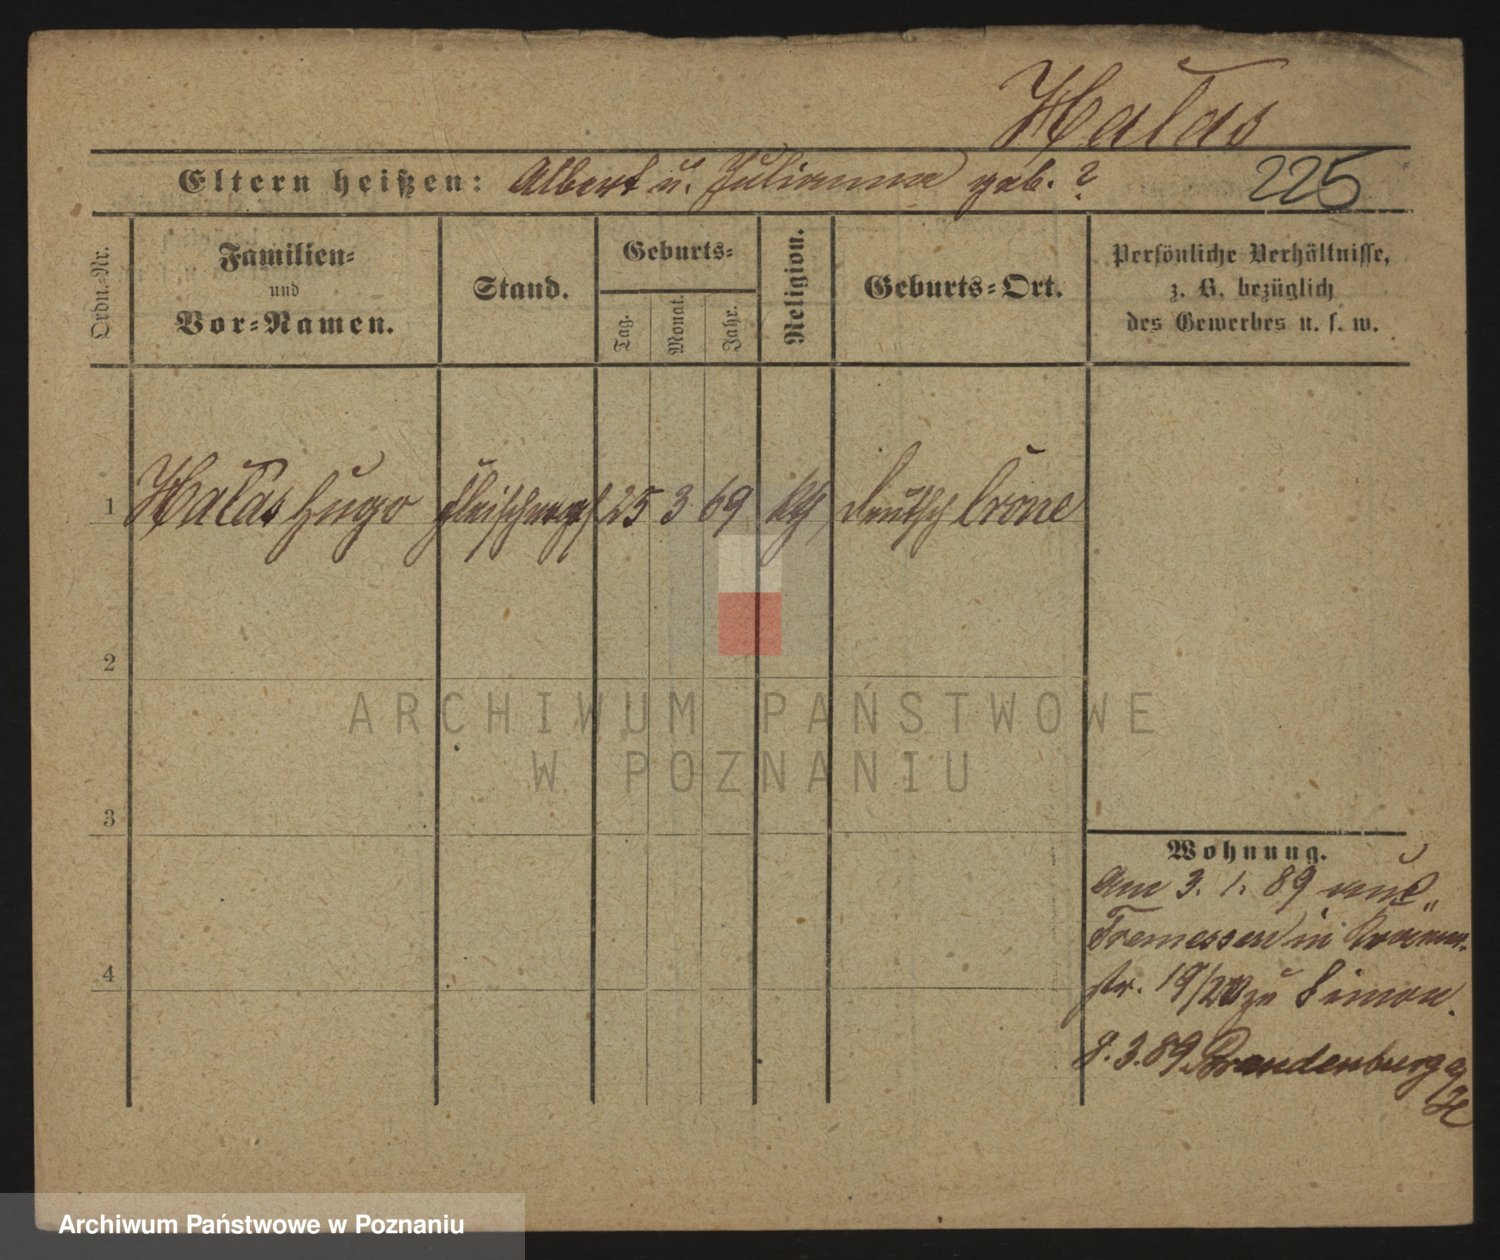 Hałas
Eltern heißen: Albert u. Julianna geb. ?
225
Ordn.-Nr.
Familien-
und
Vor-Namen.
Stand.
Geburts-
Tag.
Monat.
Jahr.
Religion.
Geburts-Ort.
Persönliche Verhältnisse,
z. B. bezüglich
des Gewerbes u. s. w.
1 Hałas Hugo 25 3 69 kth Deutsch Crone
2
3
4
Wohnung.
Am 3. 1. 89 aus
Tremessen in
str. 19/20 zu Simon.
8. 3. 89 Brandenburg a/H
ARCHIWUM PAŃSTWOWE
W POZNANIU
Archiwum Państwowe w Poznaniu